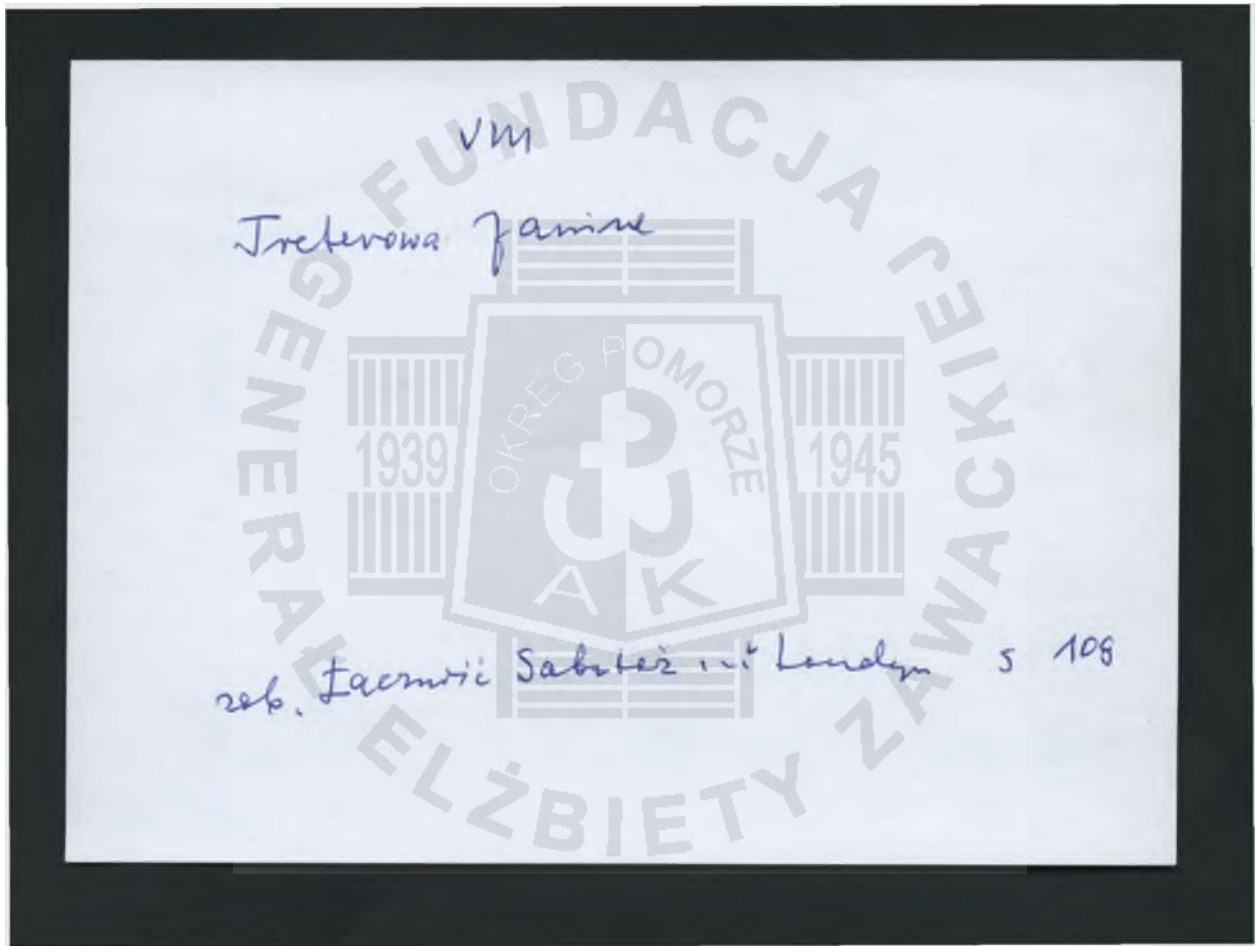 VIII
Treterowa Janina
zob. Łączność Sabotaż ... Londyn s 108
FUNDACJA JEJ
GENERAŁ ELŻBIETY ZAWACKIEJ
OKRĘG POMORZE
1939
1945
AK